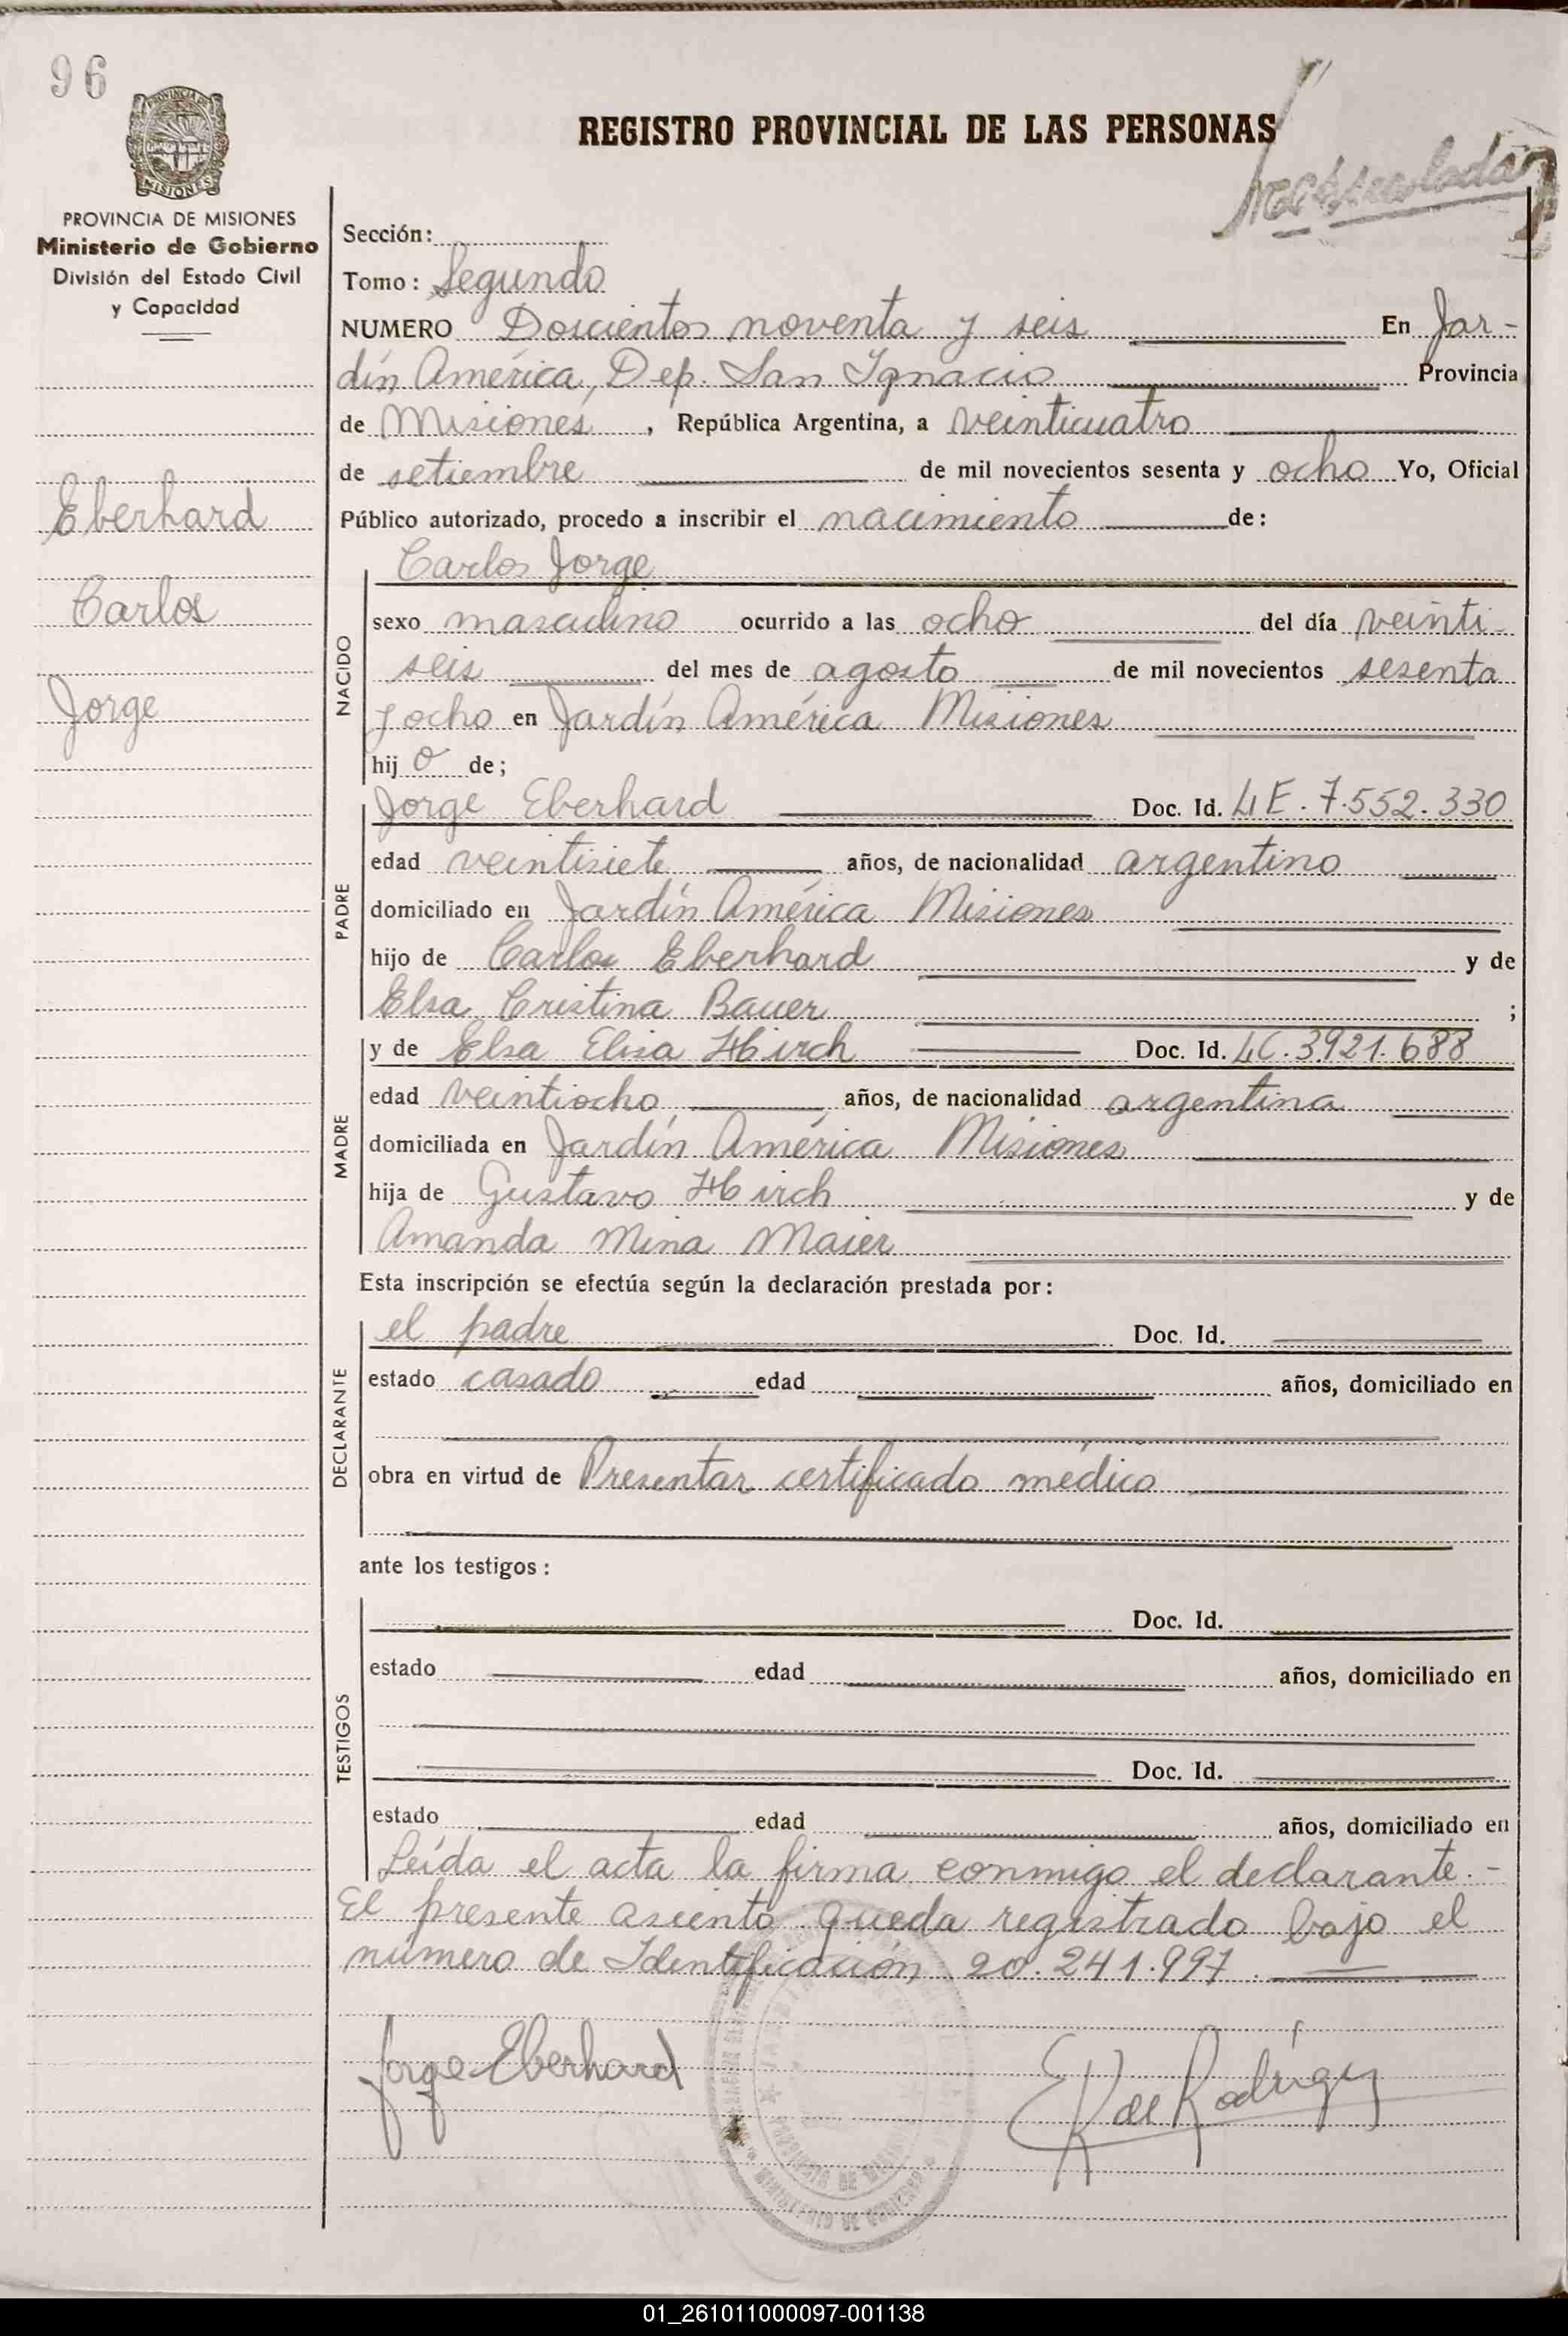 96
PROVINCIA DE
MISIONES
PROVINCIA DE MISIONES
Ministerio de Gobierno
División del Estado Civil
y Capacidad
Eberhard
Carlos
Jorge
REGISTRO PROVINCIAL DE LAS PERSONAS
Sección:
Tomo: Segundo
NUMERO Doscientos noventa y seis En Jar-
dín América, Dep. San Ignacio Provincia
de Misiones, República Argentina, a veinticuatro
de setiembre de mil novecientos sesenta y ocho Yo, Oficial
Público autorizado, procedo a inscribir el nacimiento de:
NACIDO
Carlos Jorge
sexo masculino ocurrido a las ocho del día veinti-
seis del mes de agosto de mil novecientos sesenta
y ocho en Jardín América Misiones
hijo de;
PADRE
Jorge Eberhard Doc. Id. LE. 7.552.330
edad veintisiete años, de nacionalidad argentino
domiciliado en Jardín América Misiones
hijo de Carlos Eberhard y de
Elsa Cristina Bauer ;
MADRE
y de Elsa Elisa Hirch Doc. Id. LC. 3921.688
edad veintiocho años, de nacionalidad argentina
domiciliada en Jardín América Misiones
hija de Gustavo Hirch y de
Amanda Mina Maier
Esta inscripción se efectúa según la declaración prestada por:
DECLARANTE
el padre Doc. Id.
estado casado edad años, domiciliado en
obra en virtud de Presentar certificado médico
ante los testigos:
TESTIGOS
Doc. Id.
estado edad años, domiciliado en
Doc. Id.
estado edad años, domiciliado en
Leída el acta la firma conmigo el declarante.-
El presente asiento queda registrado bajo el
número de Identificación 20.241.997.
Jorge Eberhard
E K de Rodríguez
PROVINCIA DE MISIONES
MINISTERIO DE GOBIERNO
01_261011000097-001138